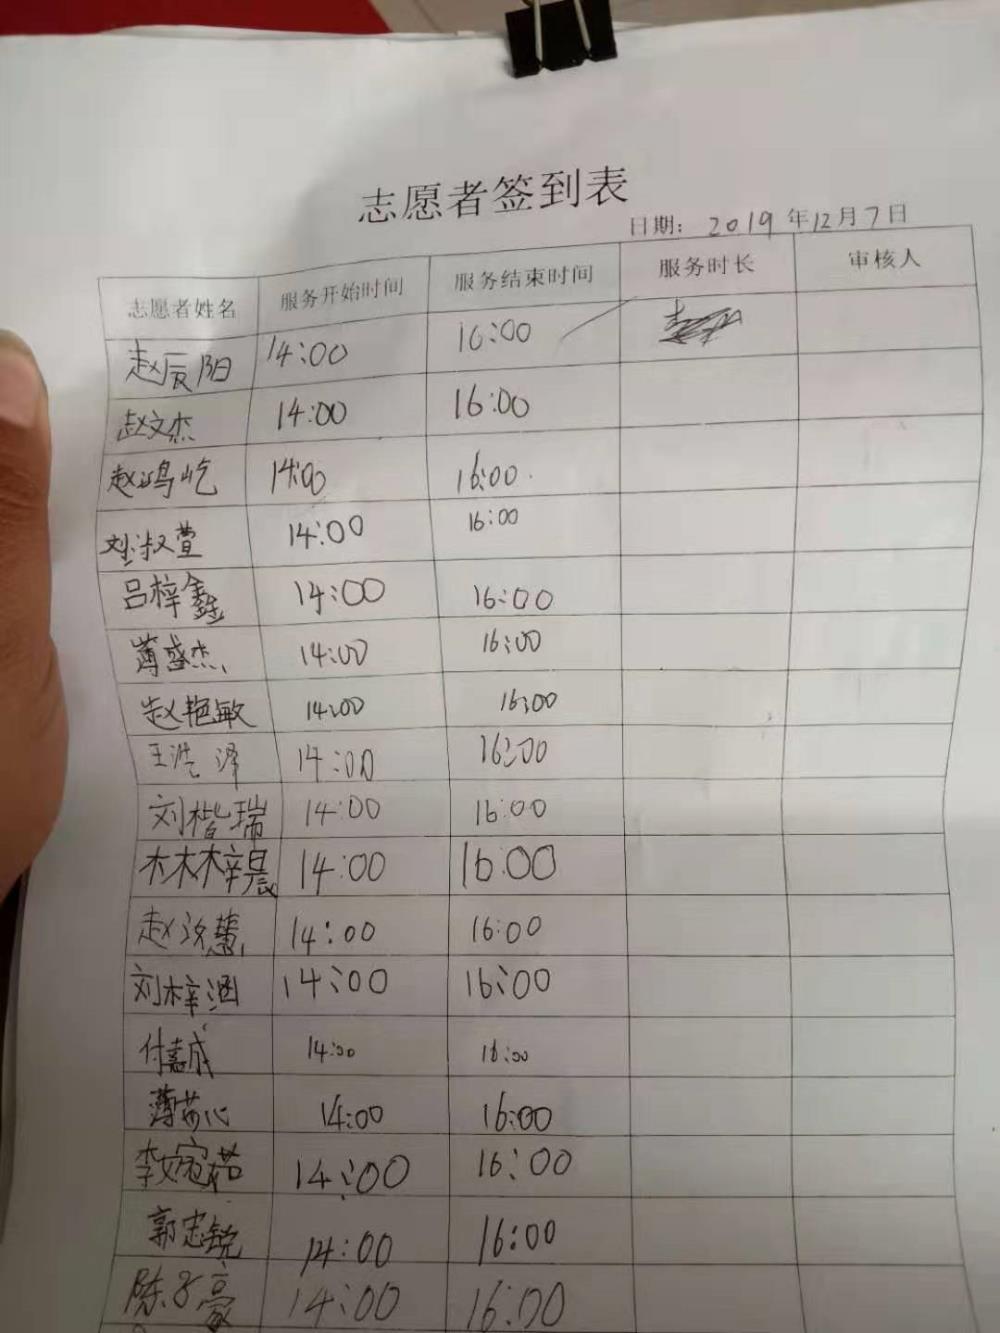 志愿者签到表
日期: 2019年12月7日
志愿者姓名 服务开始时间 服务结束时间 服务时长 审核人
赵辰阳 14:00 16:00
赵文杰 14:00 16:00
赵鸿屹 14:00 16:00
刘淑萱 14:00 16:00
吕梓鑫 14:00 16:00
薄盛杰 14:00 16:00
赵艳敏 14:00 16:00
王浩泽 14:00 16:00
刘楷瑞 14:00 16:00
林梓晨 14:00 16:00
赵汝慧 14:00 16:00
刘梓涵 14:00 16:00
付嘉成 14:00 16:00
薄芯心 14:00 16:00
李婉茹 14:00 16:00
郭忠锐 14:00 16:00
陈子豪 14:00 16:00